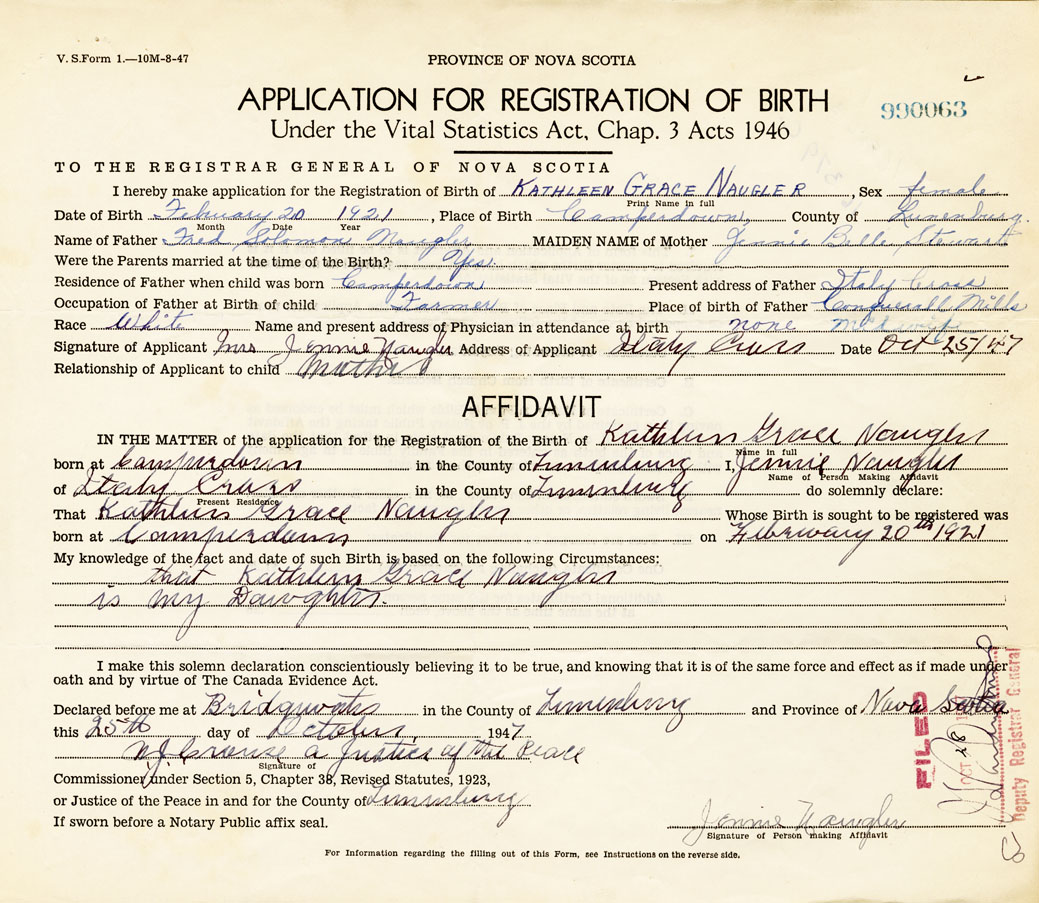 V. S. Form 1.—10M-8-47
PROVINCE OF NOVA SCOTIA
APPLICATION FOR REGISTRATION OF BIRTH
990063
Under the Vital Statistics Act, Chap. 3 Acts 1946
TO THE REGISTRAR GENERAL OF NOVA SCOTIA
I hereby make application for the Registration of Birth of KATHLEEN GRACE NAUGLER, Sex female
Print Name in full
Date of Birth February 20 1921, Place of Birth Camperdown, County of Lunenburg.
Month Date Year
Name of Father Fred Solomon Naugler MAIDEN NAME of Mother Jennie Belle Stewart
Were the Parents married at the time of the Birth? Yes.
Residence of Father when child was born Camperdown Present address of Father Italy Cross
Occupation of Father at Birth of child Farmer Place of birth of Father Conquerall Mills
Race White Name and present address of Physician in attendance at birth none midwife
Signature of Applicant Mrs Jennie Naugler Address of Applicant Italy Cross Date Oct 25/47
Relationship of Applicant to child Mother
AFFIDAVIT
IN THE MATTER of the application for the Registration of the Birth of Kathleen Grace Naugler
Name in full
born at Camperdown in the County of Lunenburg I, Jennie Naugler
Name of Person Making Affidavit
of Italy Cross in the County of Lunenburg do solemnly declare:
Present Residence
That Kathleen Grace Naugler Whose Birth is sought to be registered was
born at Camperdown on February 20th 1921
My knowledge of the fact and date of such Birth is based on the following Circumstances:
that Kathleen Grace Naugler
is my Daughter.
I make this solemn declaration conscientiously believing it to be true, and knowing that it is of the same force and effect as if made under
oath and by virtue of The Canada Evidence Act.
Declared before me at Bridgwater in the County of Lunenburg and Province of Nova Scotia
this 25th day of October, 1947
a Justice of the Peace
Signature of
Commissioner under Section 5, Chapter 38, Revised Statutes, 1923,
or Justice of the Peace in and for the County of Lunenburg
If sworn before a Notary Public affix seal.
Jennie Naugler
Signature of Person making Affidavit
For Information regarding the filling out of this Form, see Instructions on the reverse side.
FILED
OCT 28
Deputy Registrar General